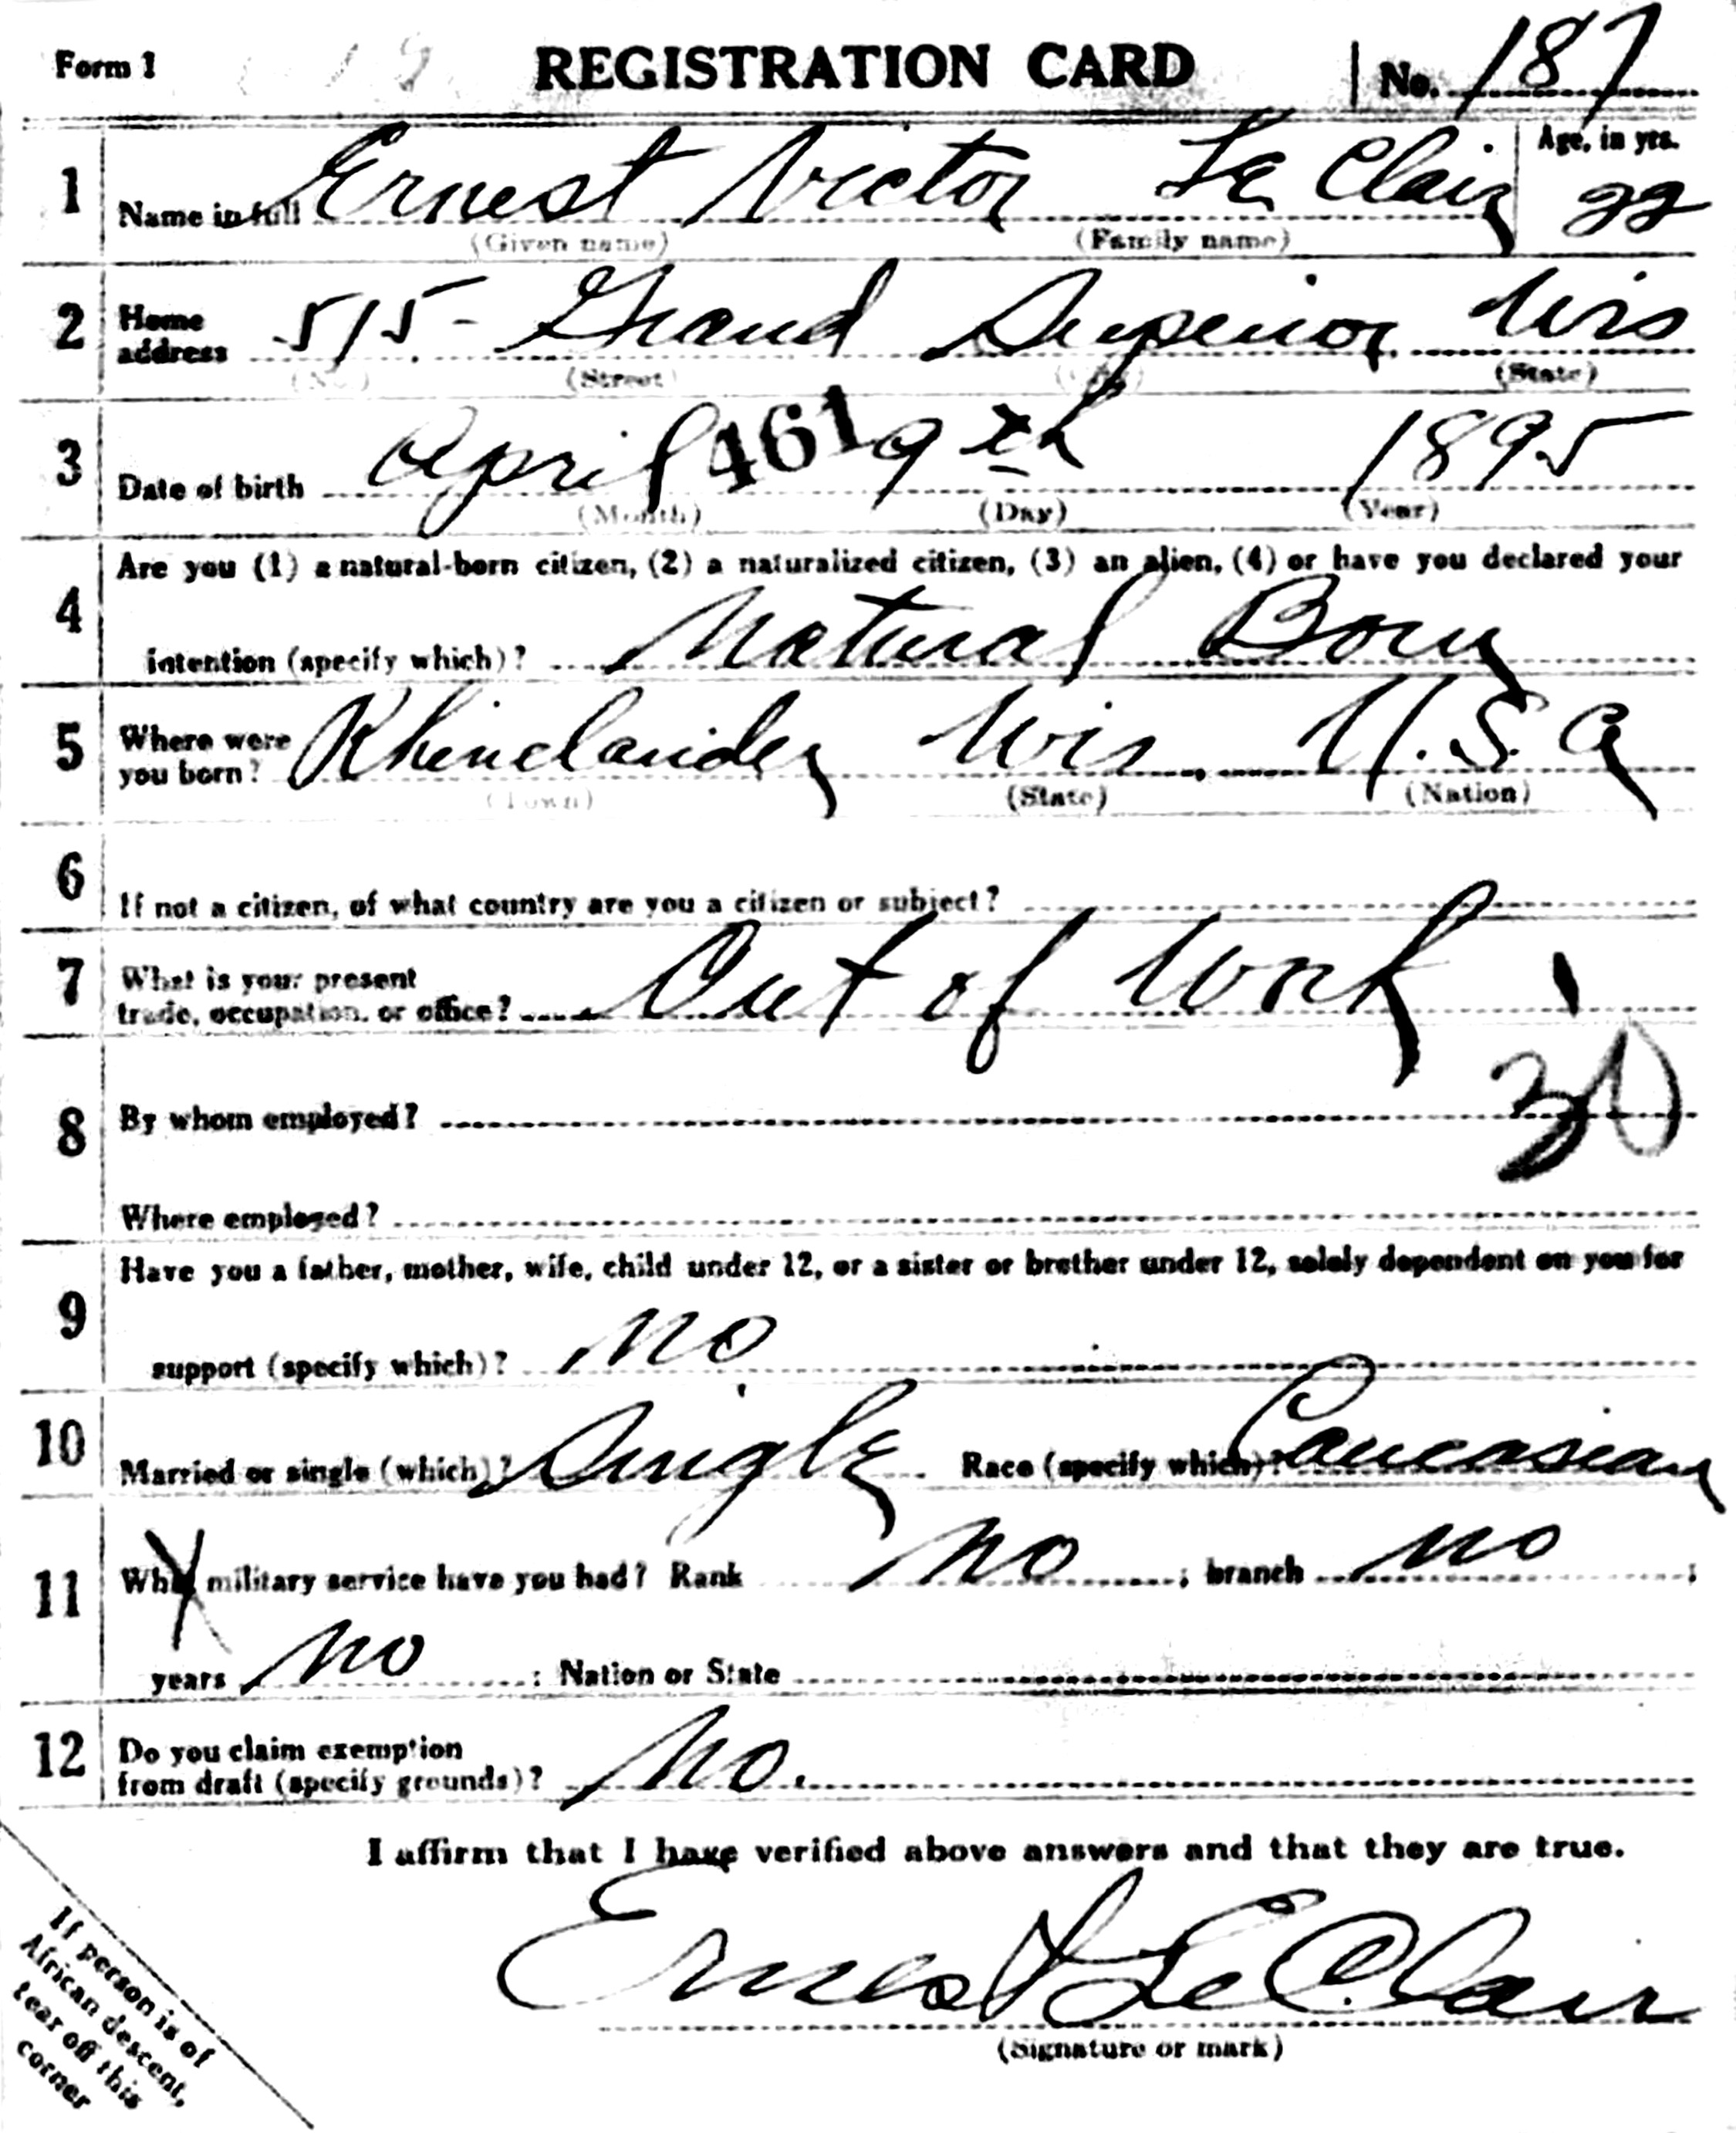 Form 1 REGISTRATION CARD No. 187
1 Name in full Ernest Victor Le Clair Age, in yrs. 22
(Given name) (Family name)
2 Home address 515 - Grand Superior Wis
(No.) (Street) (City) (State)
3 Date of birth April 461 9th 1895
(Month) (Day) (Year)
4 Are you (1) a natural-born citizen, (2) a naturalized citizen, (3) an alien, (4) or have you declared your
intention (specify which)? Natural Born
5 Where were you born? Rhinelander Wis. U.S.A
(Town) (State) (Nation)
6 If not a citizen, of what country are you a citizen or subject?
7 What is your present
trade, occupation, or office? Out of Work
8 By whom employed?
Where employed?
9 Have you a father, mother, wife, child under 12, or a sister or brother under 12, solely dependent on you for
support (specify which)? No
10 Married or single (which)? Single Race (specify which)? Caucasian
11 What military service have you had? Rank No ; branch No ;
years No ; Nation or State
12 Do you claim exemption
from draft (specify grounds)? No.
I affirm that I have verified above answers and that they are true.
Ernest LeClair
(Signature or mark)
If person is of
African descent,
tear off this
corner